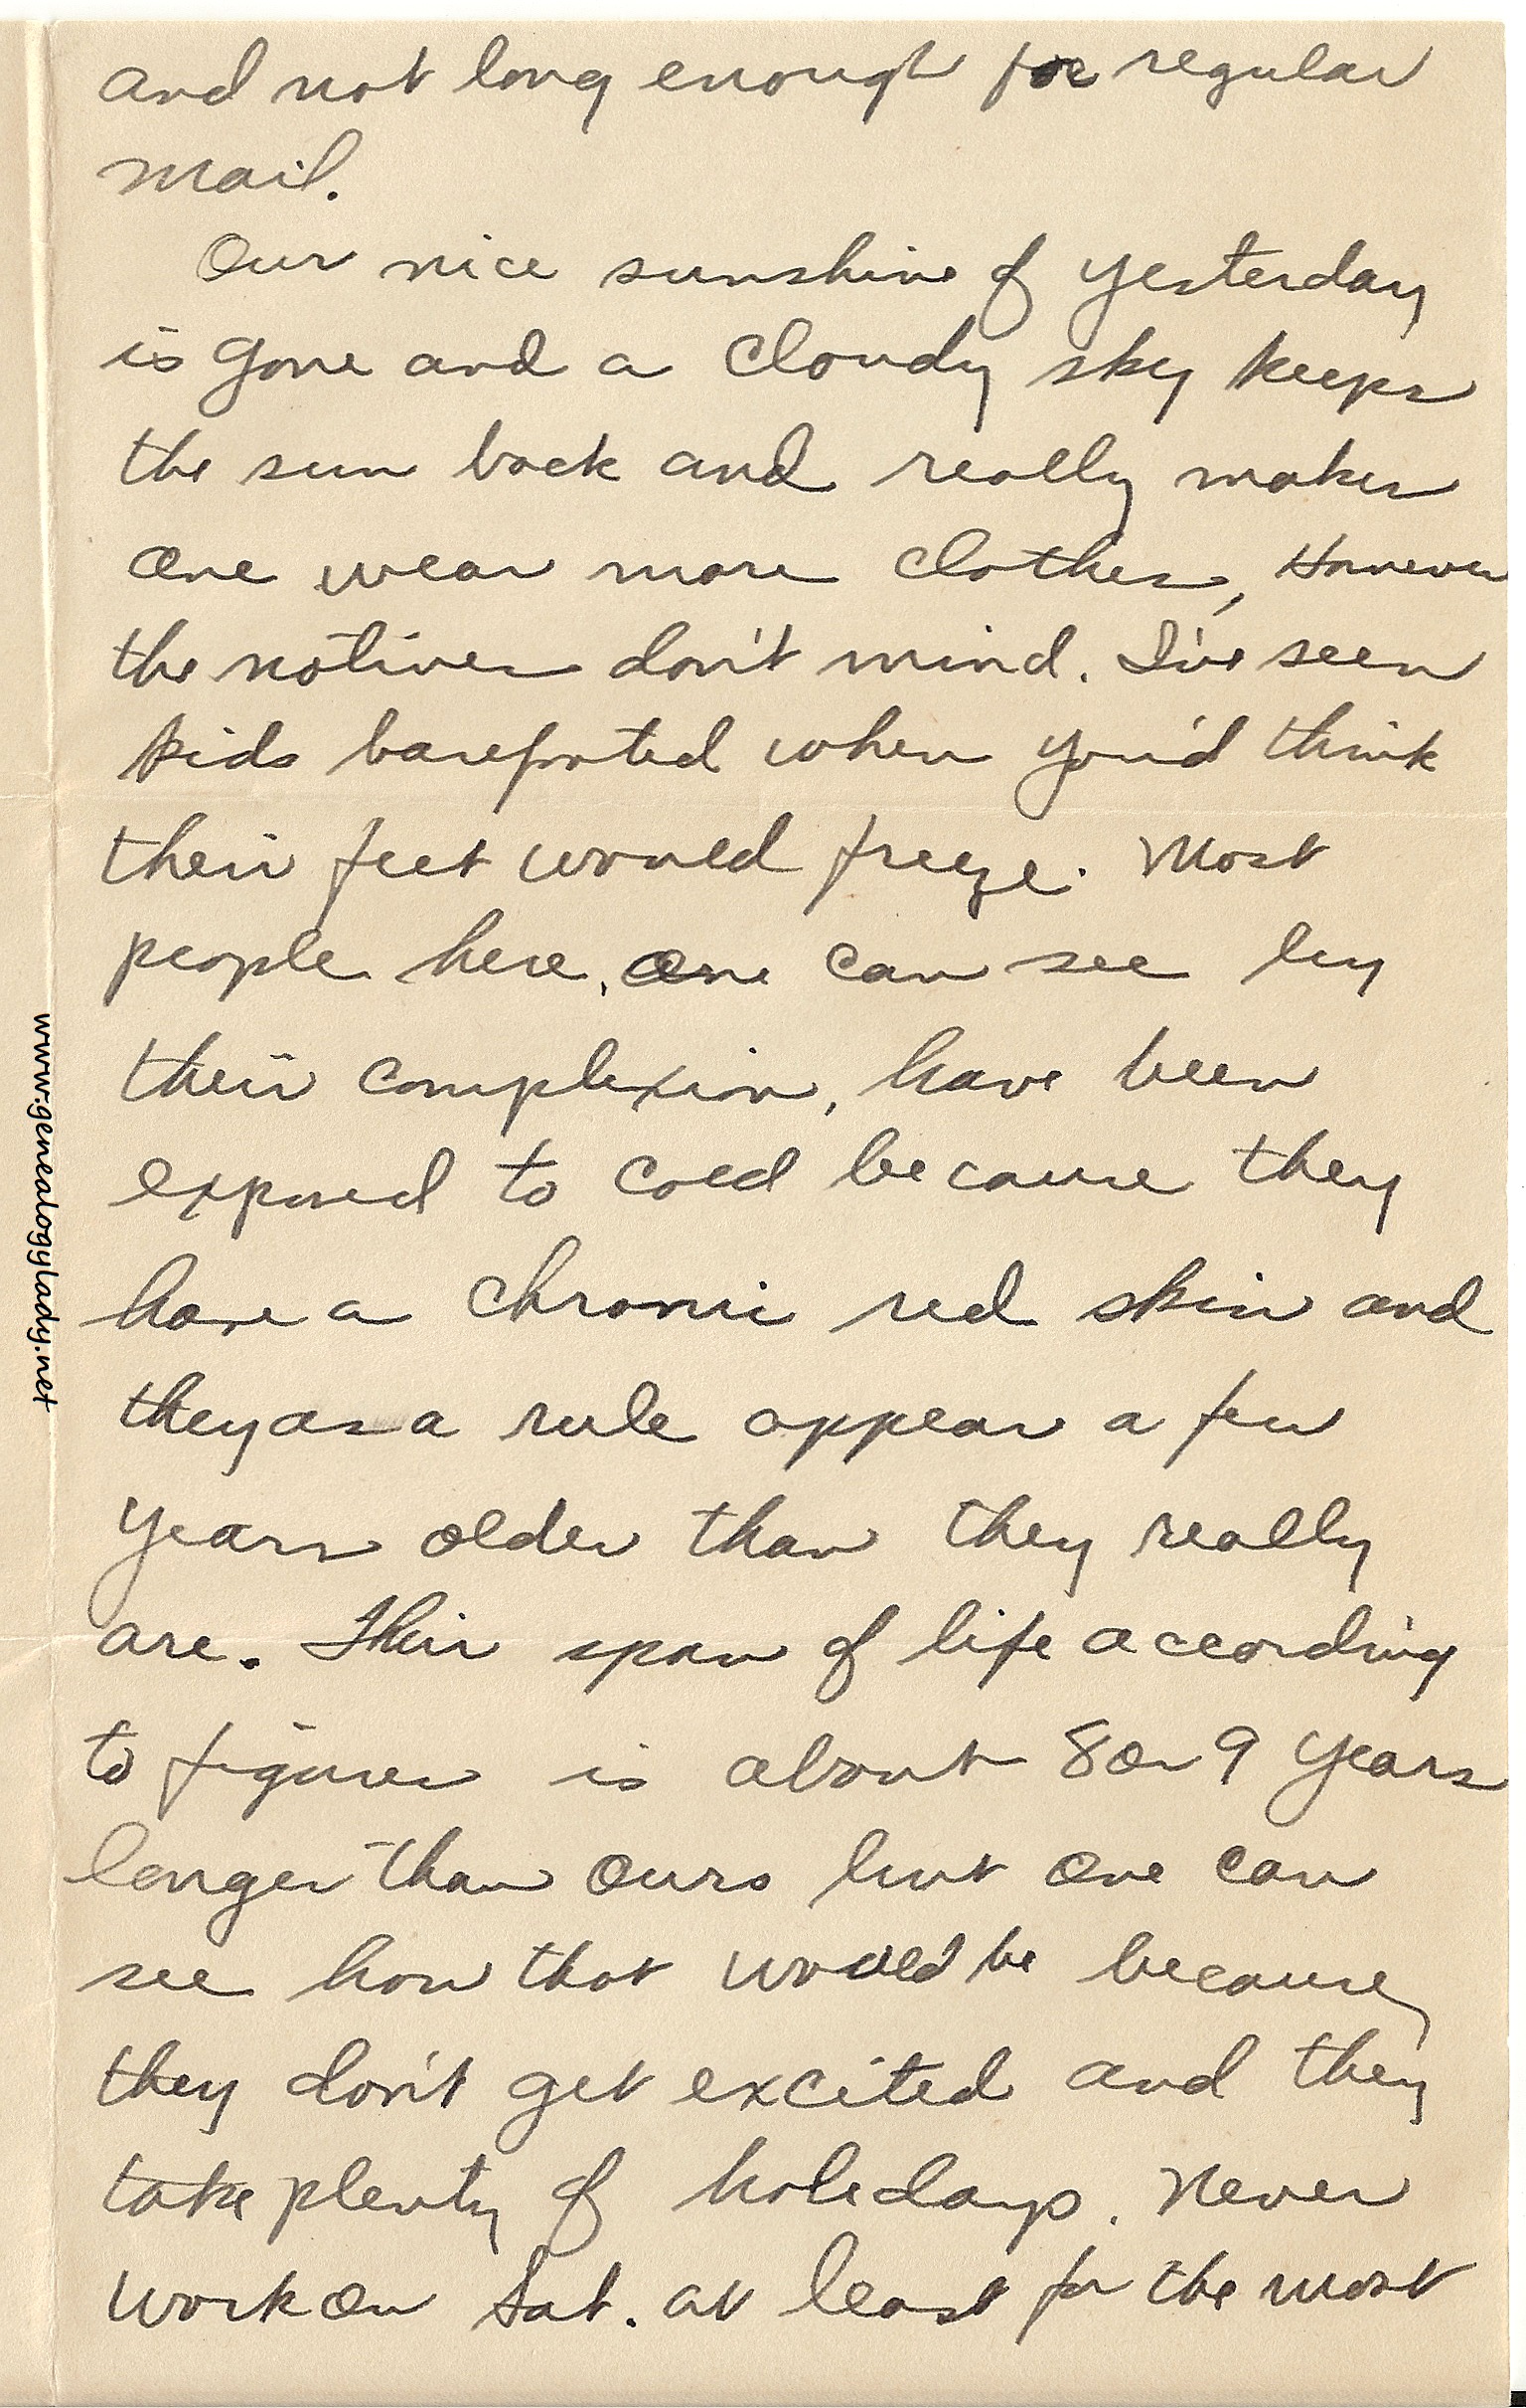 and not long enough for regular
mail.
Our nice sunshine of yesterday
is gone and a cloudy sky keeps
the sun back and really makes
one wear more clothes, However
the natives don't mind. I've seen
kids barefooted when you'd think
their feet would freeze. Most
people here, one can see by
their complexion, have been
exposed to cold because they
have a chronic red skin and
they as a rule appear a few
years older than they really
are. Their span of life according
to figures is about 8 or 9 years
longer than ours but one can
see how that would be because
they don't get excited and they
take plenty of holidays. Never
work on Sat. at least for the most
www.genealogylady.net